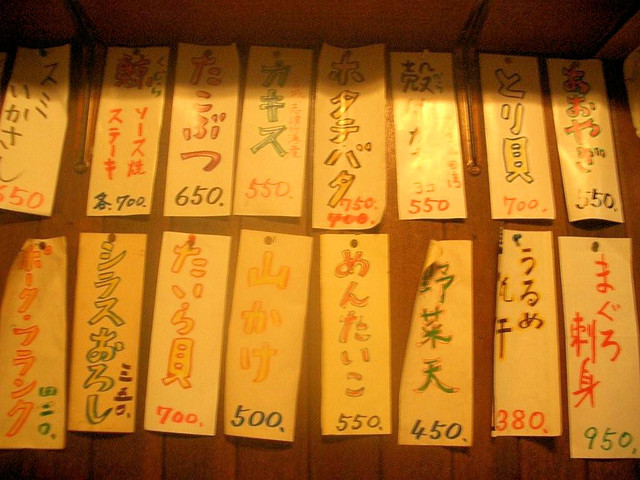 スミ
いかさし
650
鯨
ソース焼
ステーキ
各700.
たこぶつ
650.
カキス
550.
ホタテバタ
750.
700.
殻
3コ
550
とり貝
700.
550.
ポーク・フランク
四二〇.
シラスおろし
三五〇.
たいら貝
700.
山かけ
500.
めんたいこ
550.
野菜天
450.
うるめ
丸干
380.
まぐろ
刺身
950.